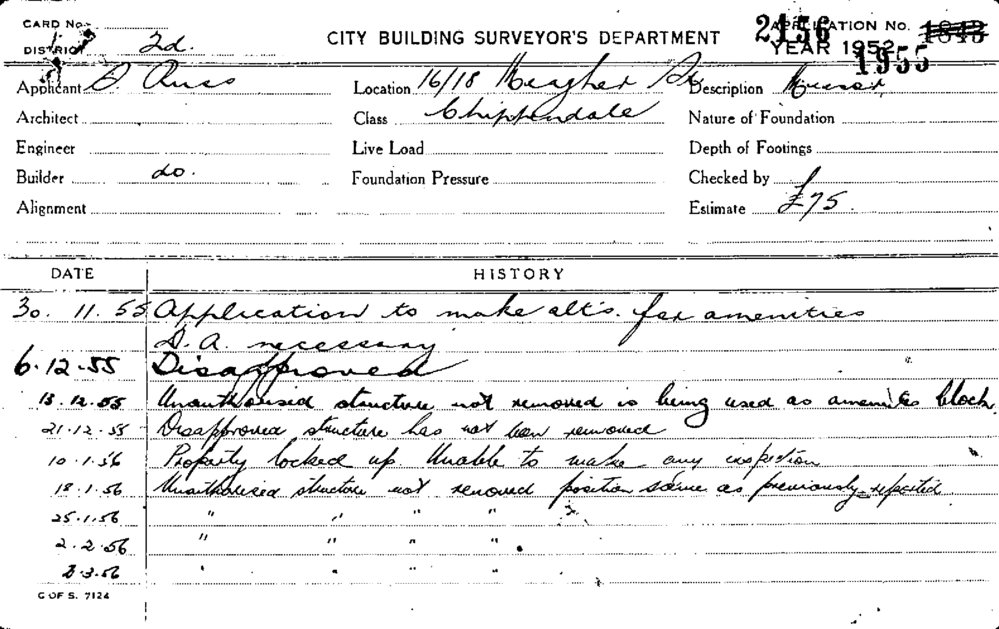 CARD No.
DISTRICT 2d.
CITY BUILDING SURVEYOR'S DEPARTMENT
2156 APPLICATION No. 1843
YEAR 1952 1955
Applicant D. Russo Location 16/18 Meagher St Description
Architect Class Chippendale Nature of Foundation
Engineer Live Load Depth of Footings
Builder do. Foundation Pressure Checked by
Alignment Estimate £75.
DATE HISTORY
30. 11. 55 Application to make alt's. for amenities
D. A. necessary
6.12.55 Disapproved
13.12.55 Unauthorised structure not removed is being used as amenities block.
21.12.55 Disapproved structure has not been removed
10.1.56 Property locked up. Unable to make any inspection
18.1.56 Unauthorised structure not removed position same as previously reported
25.1.56 " " " "
2.2.56 " " " "
2.3.56 " " " "
C OF S. 7124